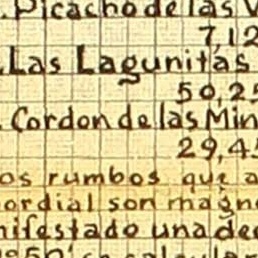 . Picacho de las
7,12
Las Lagunitas
50,25
Cordon de las Min
29,45
os rumbos que a
ordial son magne
nifestado una dec